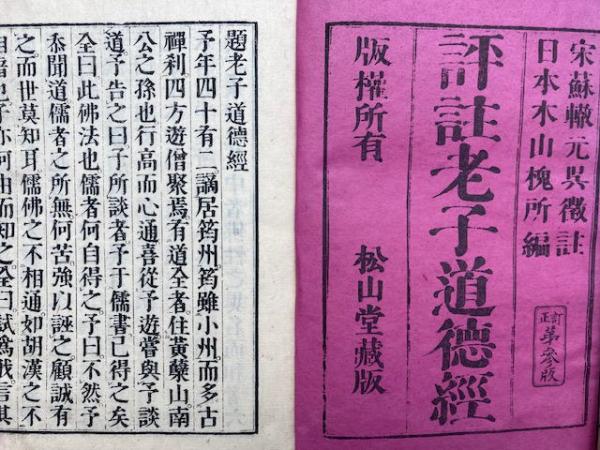 宋蘇轍元吳徵註
日本木山槐所編
訂正第參版
評註老子道德經
版權所有
松山堂藏版
題老子道德經
予年四十有二謫居筠州筠雖小州而多古
禪利四方遊僧聚焉有道全者住黃蘗山南
公之孫也行高而心通喜從予遊嘗與予談
道予告之曰子所談者予于儒書已得之矣
全曰此佛法也儒者何自得之予曰不然予
忝聞道儒者之所無何苦強㠯誣之顧誠有
之而世莫知耳儒佛之不相通如胡漢之不
相諳也子亦何由而知之全曰試爲我言其